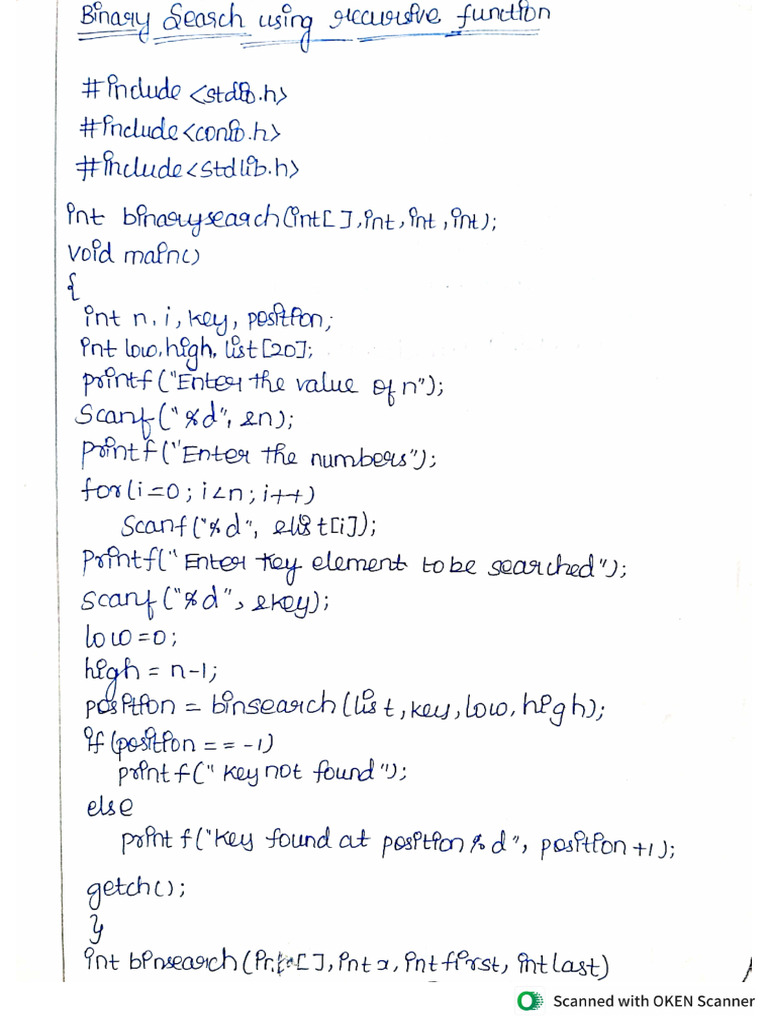 Binary Search using recursive function
#include <stdio.h>
#include<conio.h>
#include<stdlib.h>
int binarysearch(int[],int,int,int);
void main()
{
int n,i,key,position;
int low,high,list[20];
printf("Enter the value of n");
Scanf("%d",&n);
printf("Enter the numbers");
for(i=0;i<n;i++)
Scanf("%d", &list[i]);
printf("Enter key element to be searched");
Scanf("%d", &key);
low=0;
high = n-1;
position = binsearch(list,key,low,high);
if(position == -1)
printf(" key not found");
else
printf("key found at position %d", position+1);
getch();
}
int binsearch( [],int x,int first, int last)
Scanned with OKEN Scanner